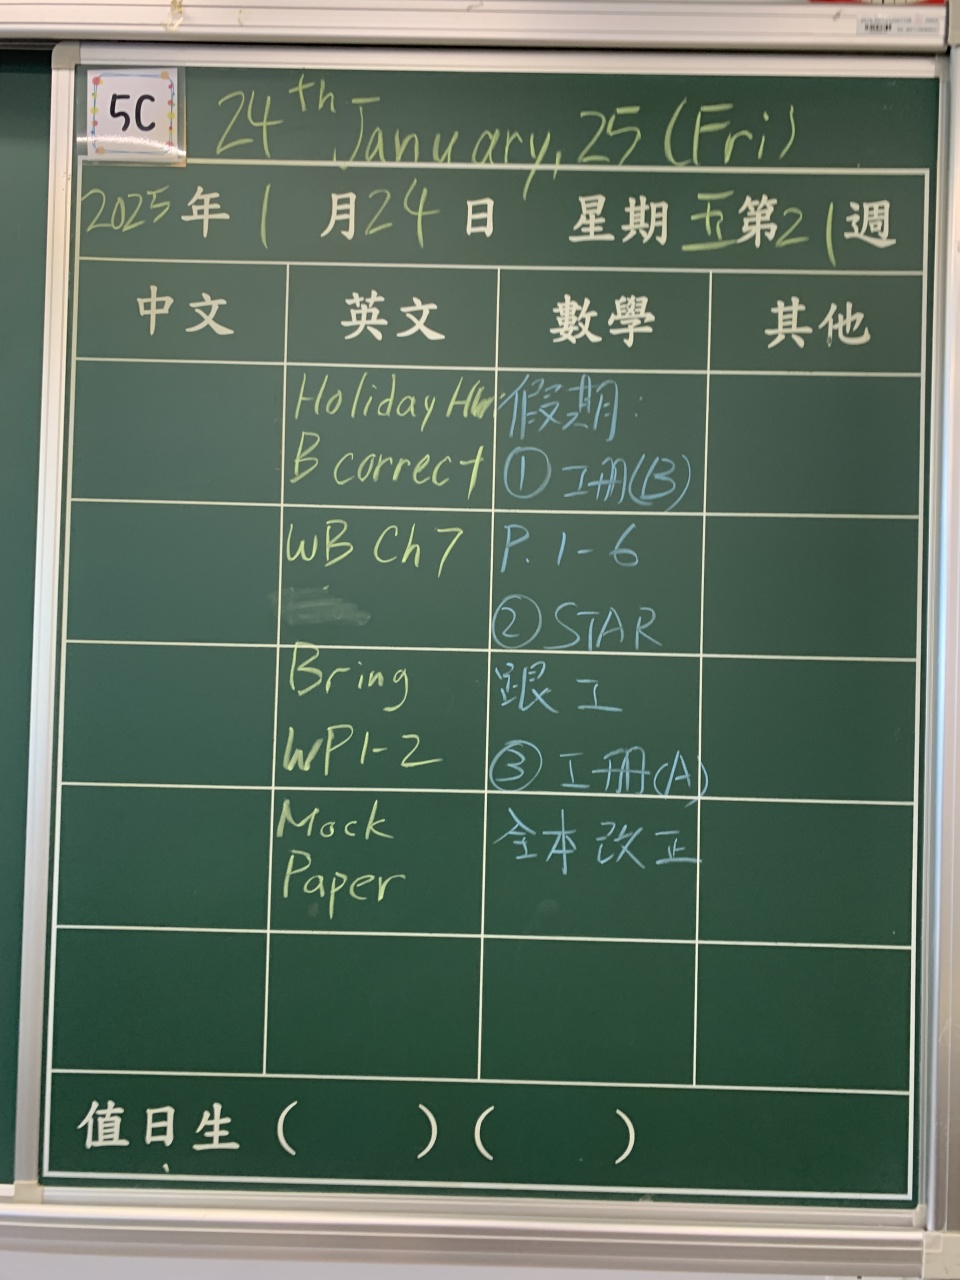 5C
24th January, 25 (Fri)
2025年1月24日 星期五第21週
中文 英文 數學 其他
Holiday HW
B correct
WB Ch 7
Bring
WP1-2
Mock
Paper
假期:
① 工冊(B)
P. 1-6
② STAR
跟工
③ 工冊(A)
全本改正
值日生 ( ) ( )